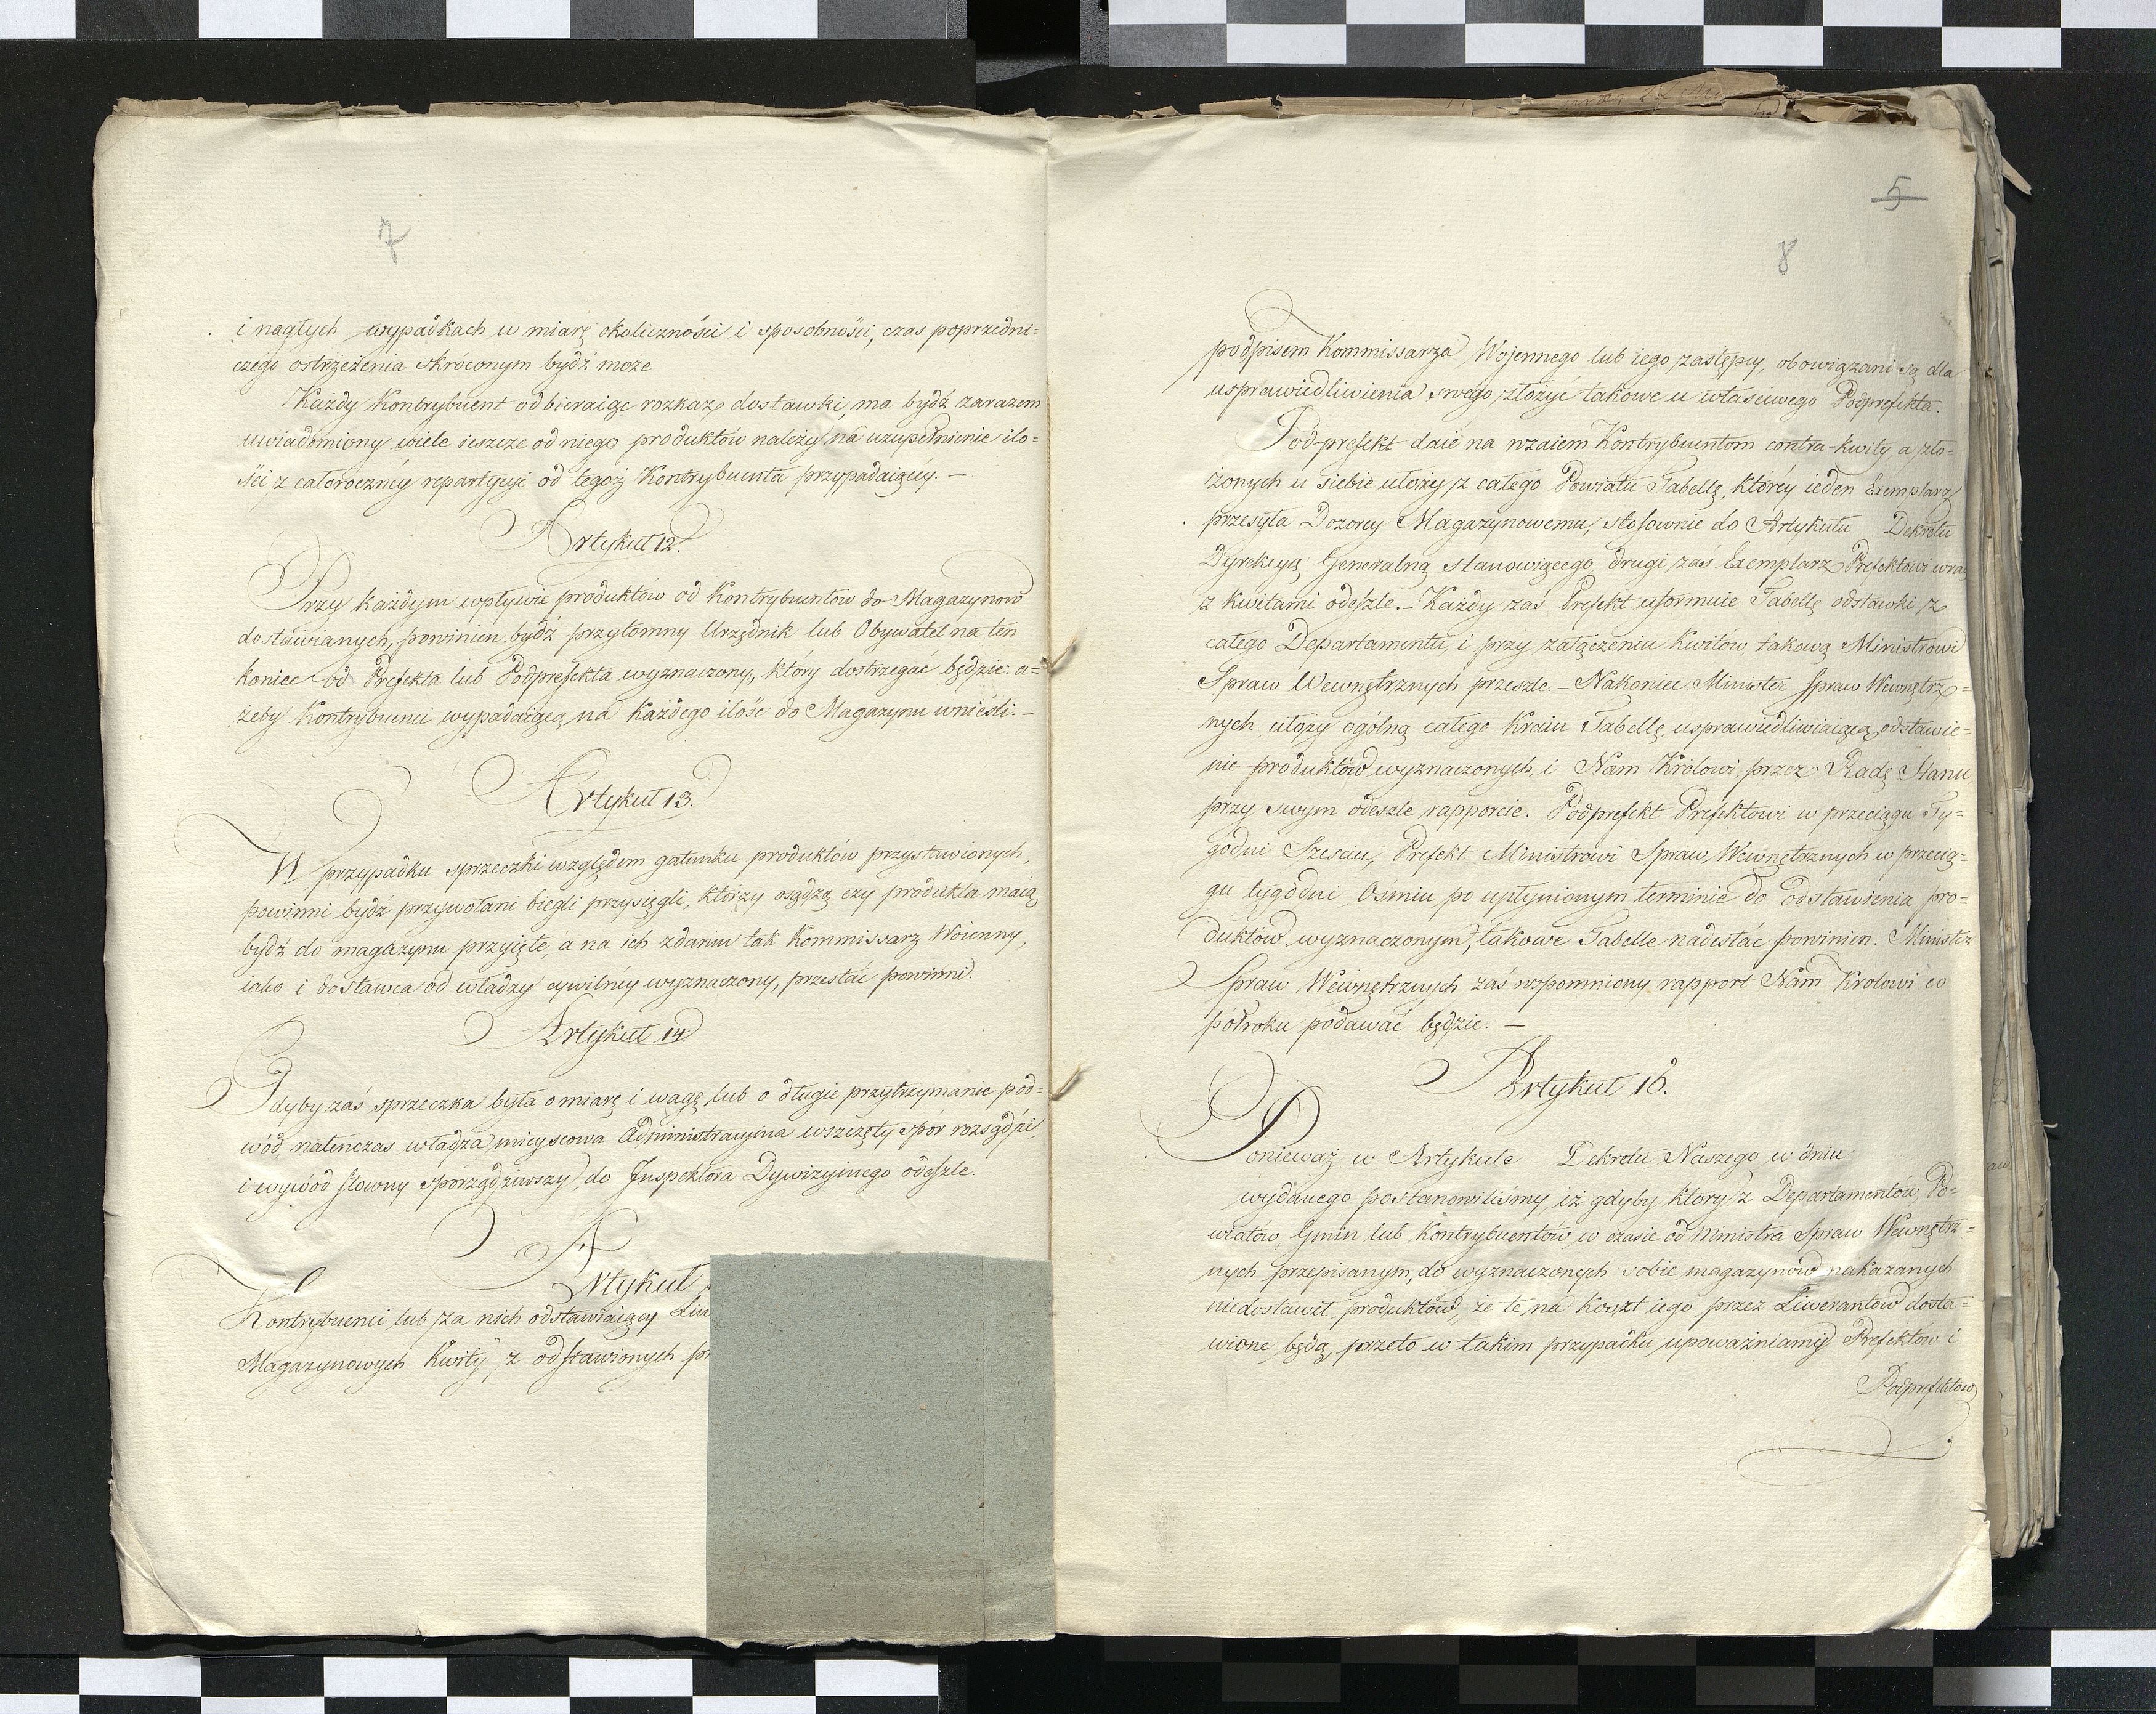 7
i nagłych wypadkach w miarę okoliczności i sposobności, czas poprzedni=
czego ostrzeżenia skróconym bydź może
Każdy Kontrybuent odbieraiąc rozkaz dostawki, ma bydź zarazem
uwiadomiony wiele ieszcze od niego produktów należy na uzupełnienie ilo=
ści, z całorocznéy repartycyi od tegoż Kontrybuenta przypadaiącéy. —
Artykuł 12.
Przy każdym wpływie produktów od Kontrybuentów do Magazynow
dostawianych, powinien bydź przytomny Urzędnik lub Obywatel na ten
koniec od Prefekta lub Podprefekta wyznaczony, który dostrzegać będzie: a=
żeby Kontrybuenci wypadaiącą na każdego ilość do Magazynu wnieśli. —
Artykuł 13.
W przypadku sprzeczki względem gatunku produktów przystawionych,
powinni bydź przywołani biegli przysięgli, którzy osądzą czy produkta maią
bydź do magazynu przyięte, a na ich zdaniu tak Kommissarz Woienny,
iako i dostawca od władzy cywilnéy wyznaczony, przestać powinni.
Artykuł 14
Gdyby zaś sprzeczka była o miarę i wagę, lub o długie przytrzymanie pod=
wód, natenczas władza mieyscowa Administracyina wszczęty spór rozsądzi,
i wywód słowny sporządziwszy, do Inspektora Dywizyinego odeszle.
Artykuł
Kontrybuenci lub za nich odstawiaiący Liw
Magazynowych Kwity, z odstawionych pr
5
8
podpisem Kommissarza Wojennego lub iego zastępcy, obowiązani są dla
usprawiedliwienia swego złożyć takowe u właściwego Podprefekta.
Pod-prefekt daie na wzaiem Kontrybuentom contra-kwity, a zło=
żonych u siebie ułoży z całego Powiatu Tabellę, któréy ieden Exemplarz
przesyła Dozorcy Magazynowemu, stosownie do Artykułu Dekretu
Dyrekcyą Generalną stanowiącego, drugi zaś Exemplarz Prefektowi wraz
z kwitami odeszle. — Każdy zaś Prefekt uformuie Tabellę odstawki z
całego Departamentu, i przy załączeniu Kwitów, takową Ministrowi
Spraw Wewnętrznych przeszle. — Nakoniec Minister Spraw Wewnętrz=
nych ułoży ogólną całego Kraiu Tabellę usprawiedliwiaiącą odstawie=
nie produktów wyznaczonych, i Nam Królowi przez Radę Stanu
przy swym odeszle rapporcie. Podprefekt Prefektowi w przeciągu Ty=
godni Szesciu, Prefekt Ministrowi Spraw Wewnętrznych w przecią=
gu tygodni Osmiu po upłynionym terminie do odstawienia pro=
duktów wyznaczonym, takowe Tabelle nadesłać powinien. Minister
Spraw Wewnętrznych zaś wspomniony rapport Nam Krolowi co
półroku podawać będzie. —
Artykuł 16.
Ponieważ w Artykule Dekretu Naszego w dniu
wydanego postanowiliśmy, iż gdyby ktory z Departamentów, Po=
wiatów, Gmin lub Kontrybuentów, w czasie od Ministra Spraw Wewnętrz=
nych przepisanym, do wyznaczonych sobie magazynów nakazanych
niedostawił produktów, że te na koszt iego przez Liwerantów dosta=
wione będą, przeto w takim przypadku upoważniamy Prefektów i
Podprefektow